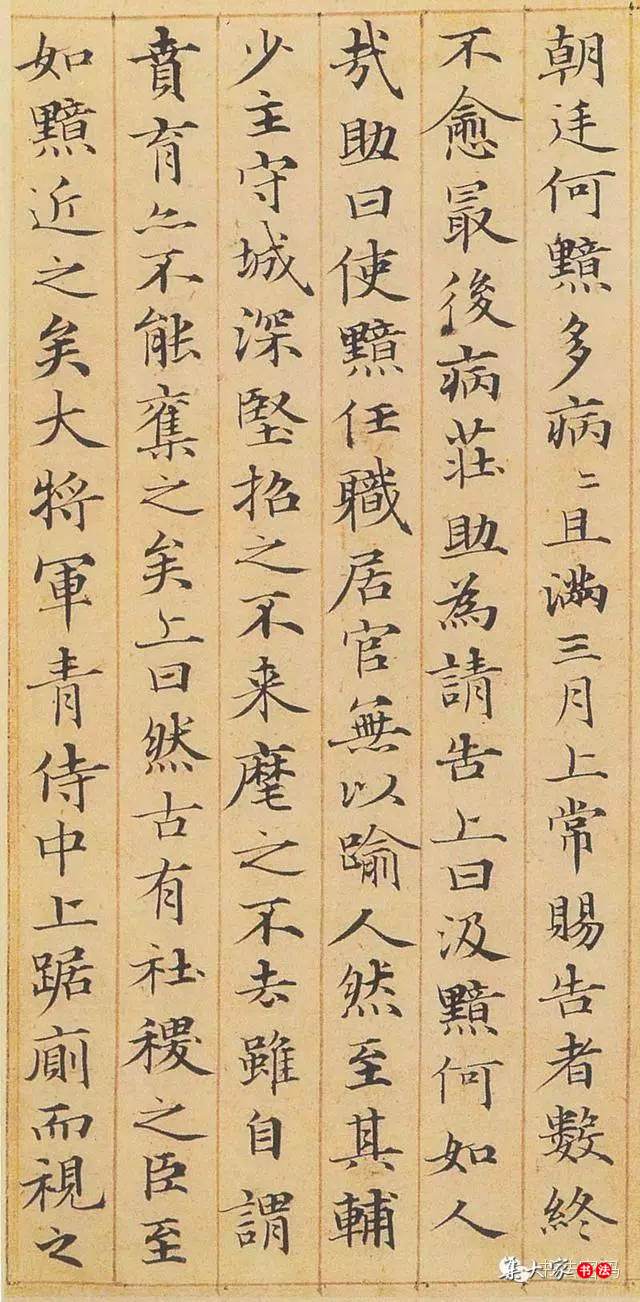 朝廷何黯多病〻且满三月上常賜告者數終
不愈最後病莊助為請告上曰汲黯何如人
㢤助曰使黯任職居官無以踰人然至其輔
少主守城深堅招之不来麾之不去雖自謂
賁育亦不能奪之矣上曰然古有社稷之臣至
如黯近之矣大將軍青侍中上踞廁而視之
集大家书法